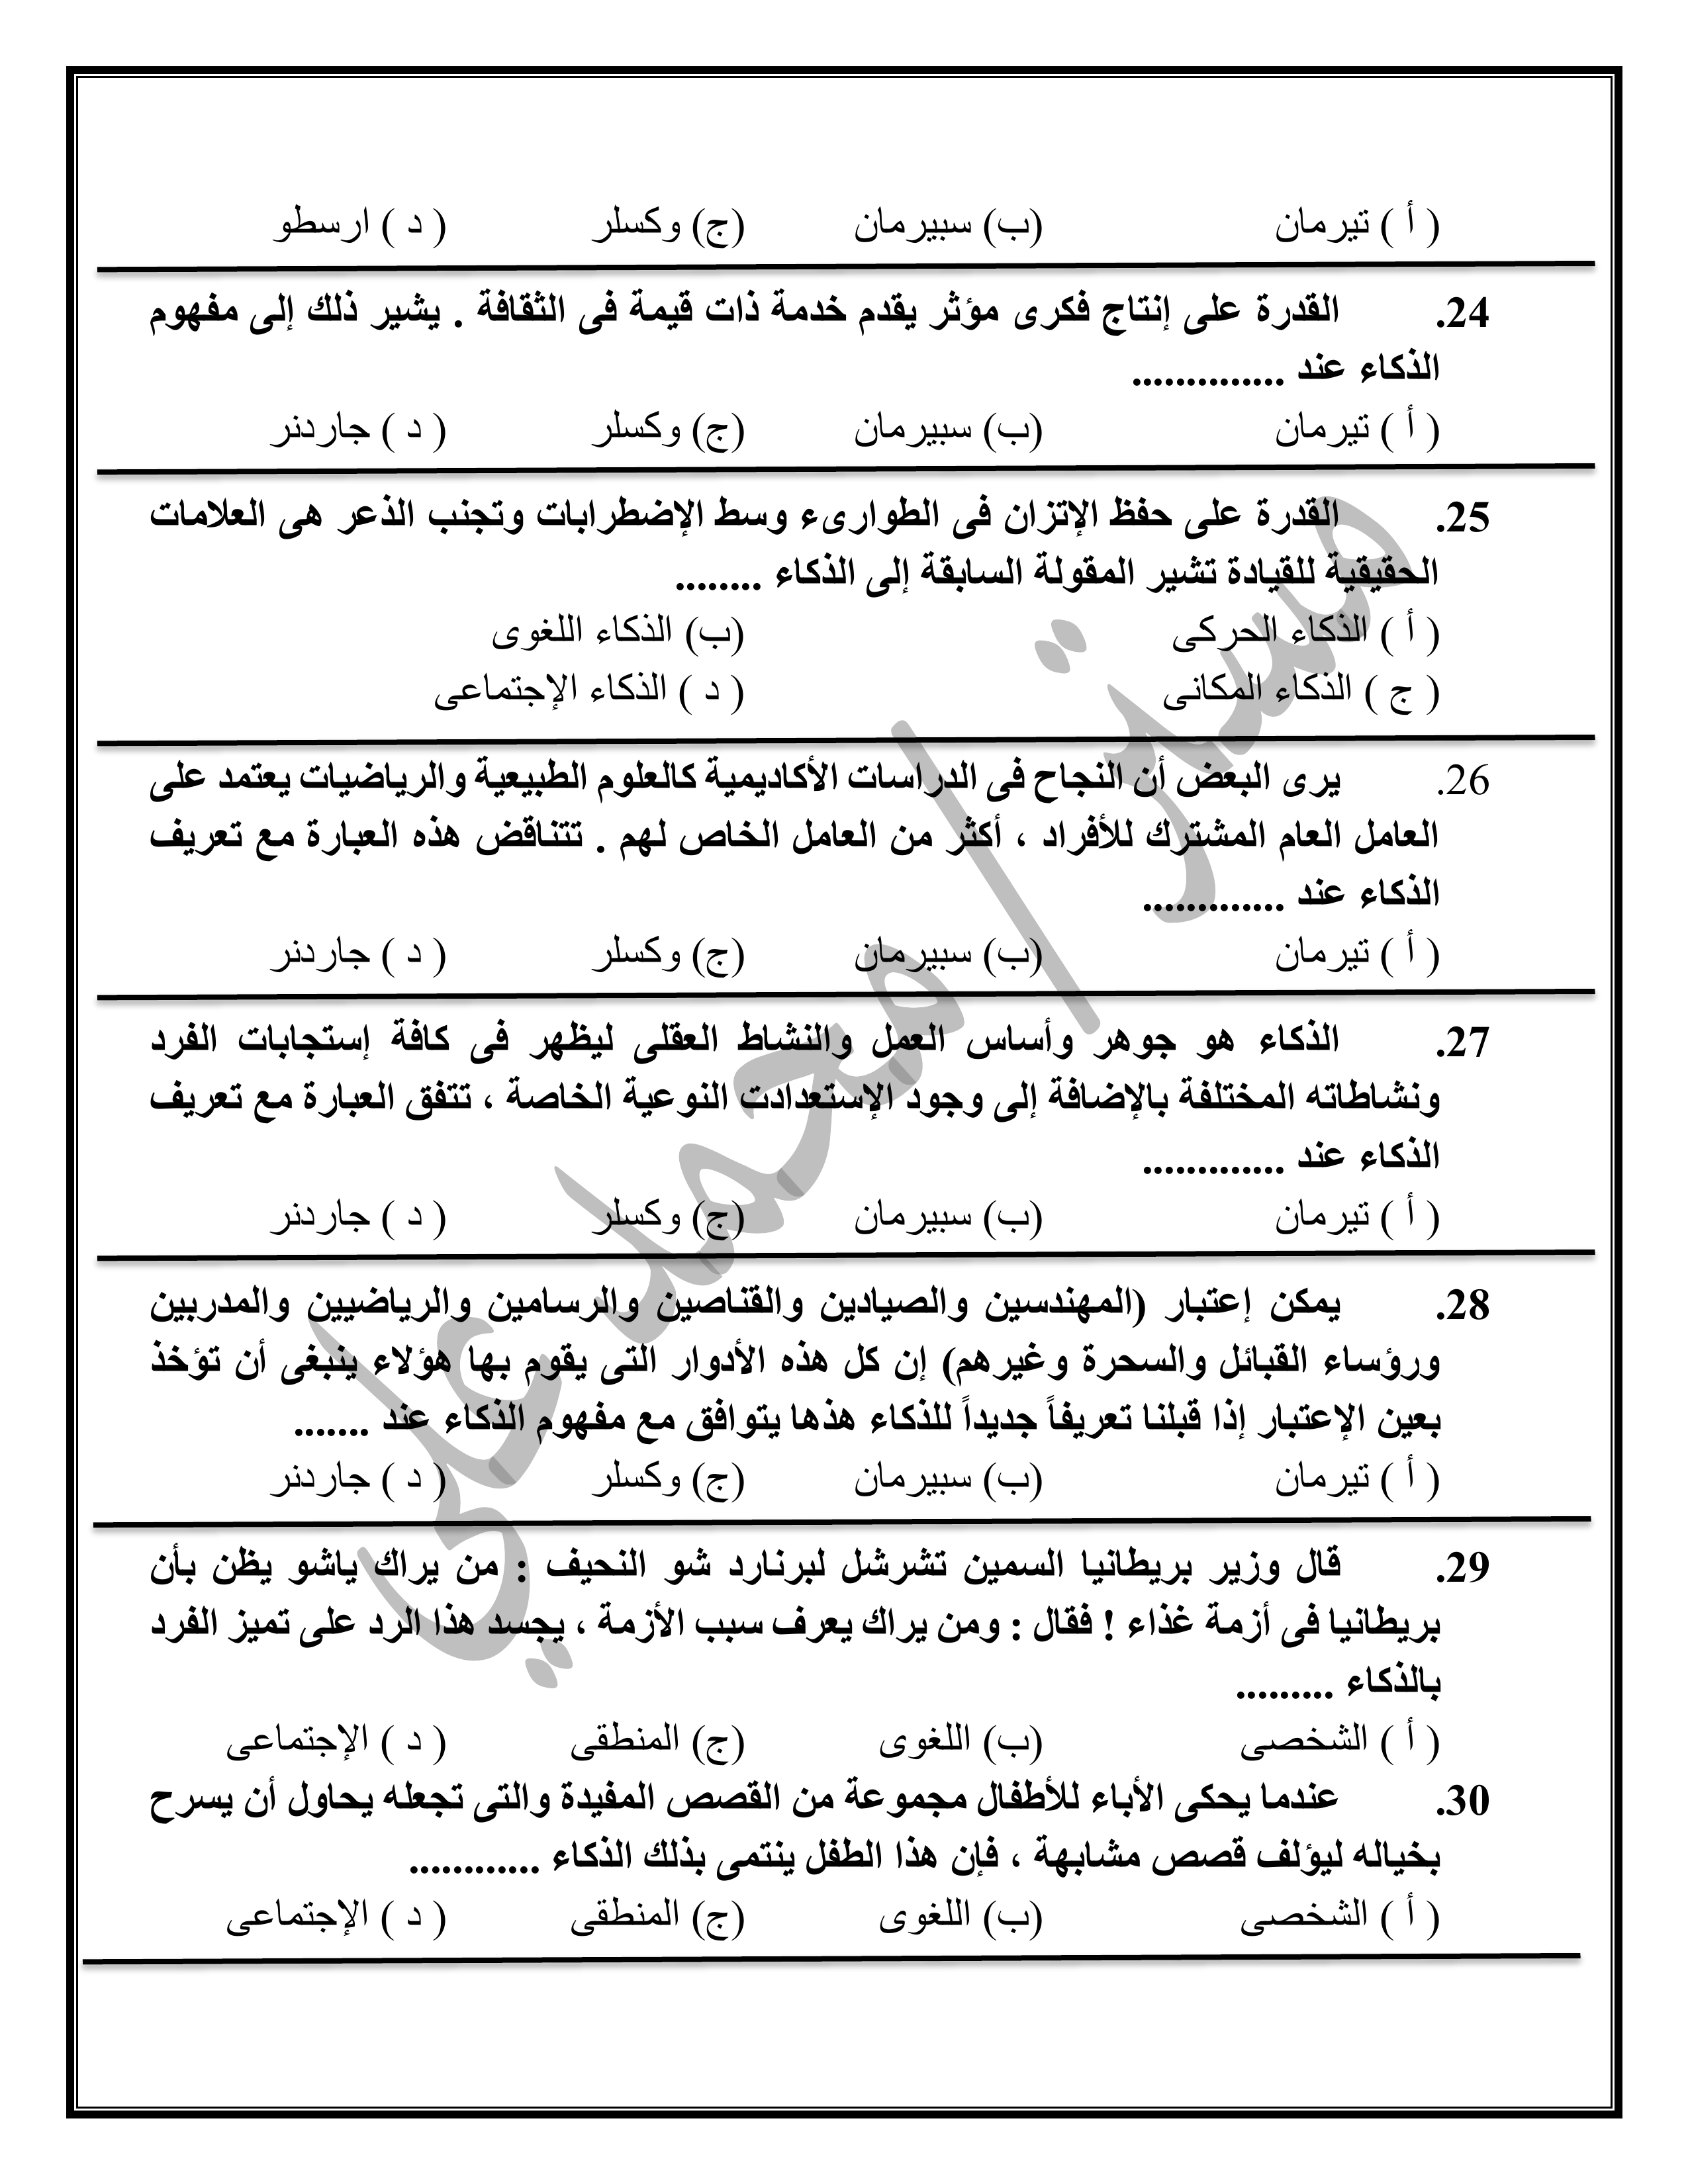 ( أ ) تيرمان (ب) سبيرمان (ج) وكسلر ( د ) ارسطو
24. القدرة على إنتاج فكرى مؤثر يقدم خدمة ذات قيمة فى الثقافة . يشير ذلك إلى مفهوم
الذكاء عند ..............
( أ ) تيرمان (ب) سبيرمان (ج) وكسلر ( د ) جاردنر
25. القدرة على حفظ الإتزان فى الطوارىء وسط الإضطرابات وتجنب الذعر هى العلامات
الحقيقية للقيادة تشير المقولة السابقة إلى الذكاء ........
( أ ) الذكاء الحركى (ب) الذكاء اللغوى
( ج ) الذكاء المكانى ( د ) الذكاء الإجتماعى
26. يرى البعض أن النجاح فى الدراسات الأكاديمية كالعلوم الطبيعية والرياضيات يعتمد على
العامل العام المشترك للأفراد ، أكثر من العامل الخاص لهم . تتناقض هذه العبارة مع تعريف
الذكاء عند .............
( أ ) تيرمان (ب) سبيرمان (ج) وكسلر ( د ) جاردنر
27. الذكاء هو جوهر وأساس العمل والنشاط العقلى ليظهر فى كافة إستجابات الفرد
ونشاطاته المختلفة بالإضافة إلى وجود الإستعدادت النوعية الخاصة ، تتفق العبارة مع تعريف
الذكاء عند .............
( أ ) تيرمان (ب) سبيرمان (ج) وكسلر ( د ) جاردنر
28. يمكن إعتبار (المهندسين والصيادين والقناصين والرسامين والرياضيين والمدربين
ورؤساء القبائل والسحرة وغيرهم) إن كل هذه الأدوار التى يقوم بها هؤلاء ينبغى أن تؤخذ
بعين الإعتبار إذا قبلنا تعريفاً جديداً للذكاء هذها يتوافق مع مفهوم الذكاء عند .......
( أ ) تيرمان (ب) سبيرمان (ج) وكسلر ( د ) جاردنر
29. قال وزير بريطانيا السمين تشرشل لبرنارد شو النحيف : من يراك ياشو يظن بأن
بريطانيا فى أزمة غذاء ! فقال : ومن يراك يعرف سبب الأزمة ، يجسد هذا الرد على تميز الفرد
بالذكاء .........
( أ ) الشخصى (ب) اللغوى (ج) المنطقى ( د ) الإجتماعى
30. عندما يحكى الأباء للأطفال مجموعة من القصص المفيدة والتى تجعله يحاول أن يسرح
بخياله ليؤلف قصص مشابهة ، فإن هذا الطفل ينتمى بذلك الذكاء ............
( أ ) الشخصى (ب) اللغوى (ج) المنطقى ( د ) الإجتماعى
مستر / محمد علي